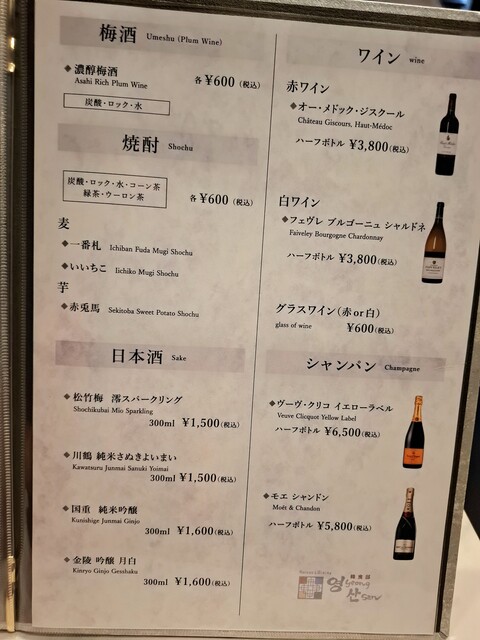 梅酒 Umeshu (Plum Wine)
◆濃醇梅酒
Asahi Rich Plum Wine
各¥600 (税込)
炭酸・ロック・水
焼酎 Shochu
炭酸・ロック・水・コーン茶
緑茶・ウーロン茶
各¥600 (税込)
麦
◆一番札 Ichiban Fuda Mugi Shochu
◆いいちこ Iichiko Mugi Shochu
芋
◆赤兎馬 Sekitoba Sweet Potato Shochu
日本酒 Sake
◆松竹梅 澪スパークリング
Shochikubai Mio Sparkling
300ml ¥1,500(税込)
◆川鶴 純米さぬきよいまい
Kawatsuru Junmai Sanuki Yoimai
300ml ¥1,500(税込)
◆国重 純米吟醸
Kunishige Junmai Ginjo
300ml ¥1,600(税込)
◆金陵 吟醸 月白
Kinryo Ginjo Gesshaku
300ml ¥1,600(税込)
ワイン wine
赤ワイン
◆オー・メドック・ジスクール
Château Giscours, Haut-Médoc
ハーフボトル ¥3,800(税込)
白ワイン
◆フェヴレ ブルゴーニュ シャルドネ
Faiveley Bourgogne Chardonnay
ハーフボトル ¥3,800(税込)
グラスワイン(赤or白)
glass of wine ¥600(税込)
シャンパン Champagne
◆ヴーヴ・クリコ イエローラベル
Veuve Clicquot Yellow Label
ハーフボトル ¥6,500(税込)
◆モエ シャンドン
Moët & Chandon
ハーフボトル ¥5,800(税込)
韓食房
영산
young san